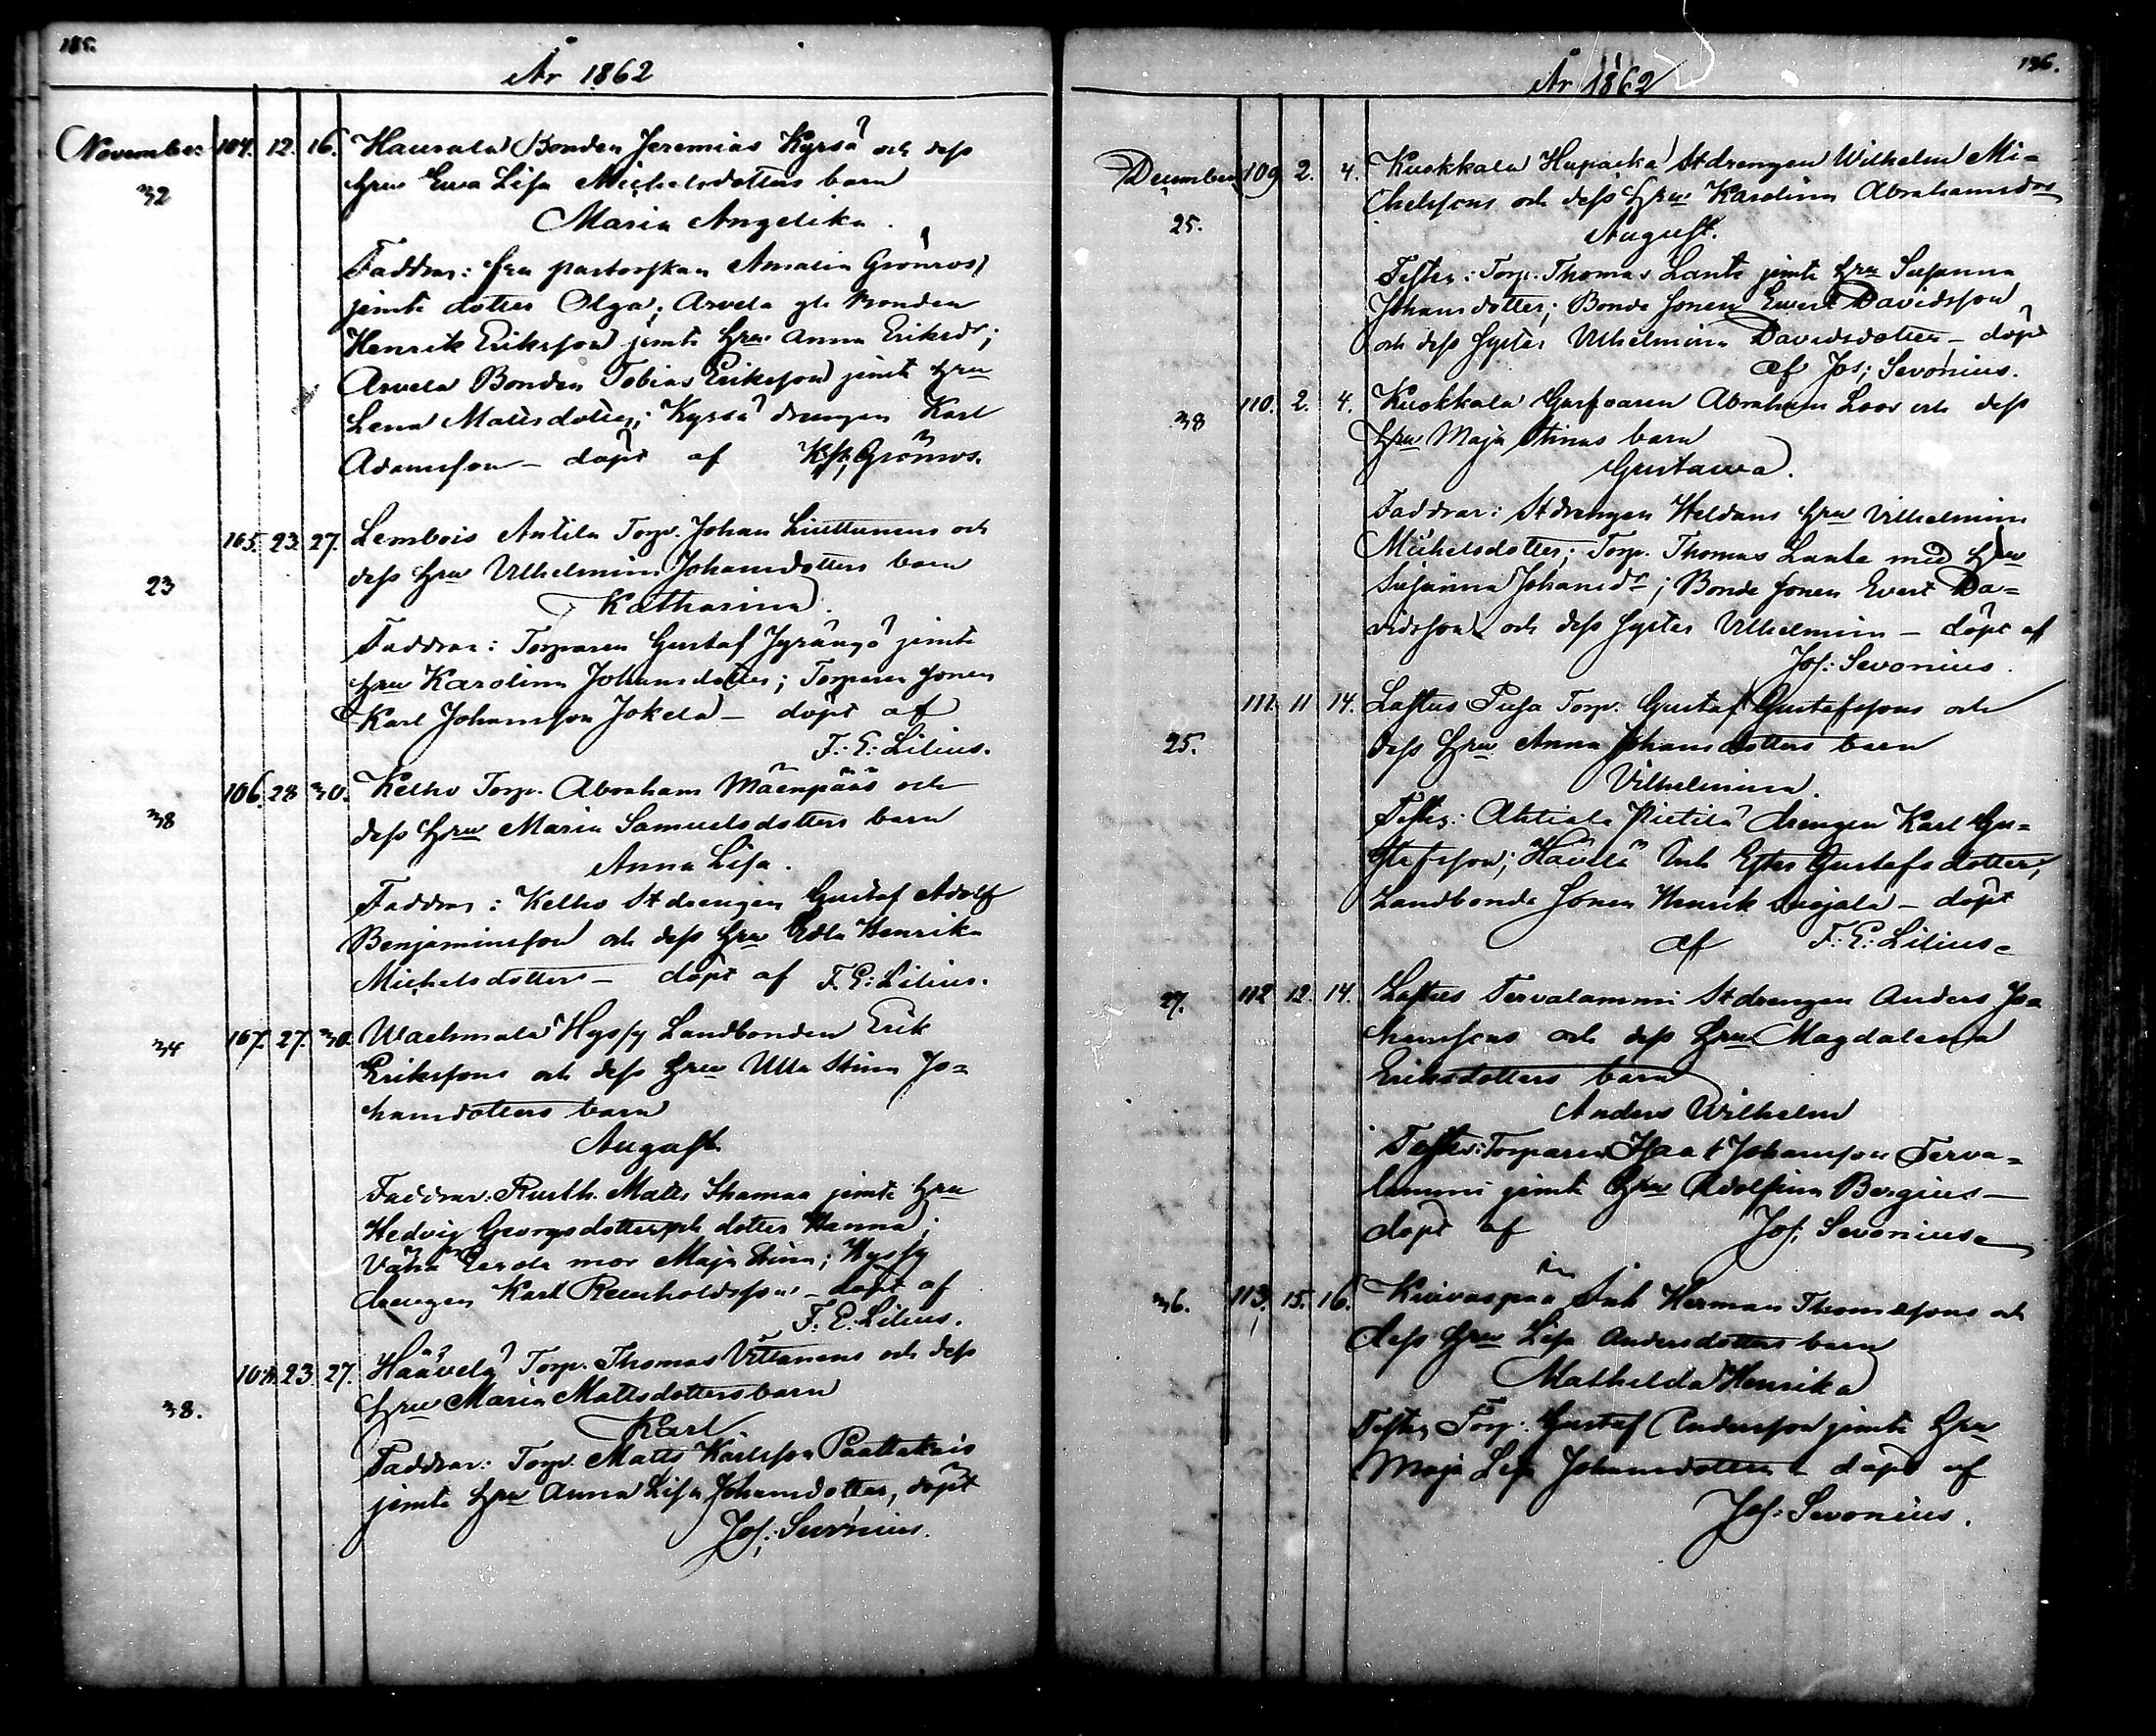 185.
År 1862
November 104. 12. 16. Haurala Bonden Jeremias Kyrsä och dess
32 hru Ewa Lisa Michelsdotters barn
Maria Angelika.
Faddrar: fru pastorskan Amalia Grönros
jemte dotter Olga; Arvela gle Bonden
Henrik Eriksson jemte hru Anna Eriksdr;
Arvela Bonden Tobias Eriksson jemte hru
Lena Mattsdotter; Kyrsä drengen Karl
Adamsson – döpt af K. Fr. Grönros.
105. 23. 27. Lembois Antila Torp. Johan Liuttunens och
23 dess hru Vilhelmina Johansdotters barn
Katharina.
Faddrar: Torparen Gustaf Jyrängö jemte
hru Karolina Johansdotter; Torpare sonen
Karl Johansson Jokela – döpt af
F: E: Lilius.
106. 28 30. Kelho Torp. Abraham Mäenpääs och
38 dess hru Maria Samuelsdotters barn
Anna Lisa.
Faddrar: Kelho Stdrengen Gustaf Adolf
Benjaminsson och dess hru Edla Henrika
Michelsdotter – döpt af F. E: Lilius.
34 107. 27. 30. Wachmala Hyssy Landbonden Erik
Erikssons och dess hru Ulla Stina Jo=
hansdotters barn
August
Faddrar: Rusth. Matts Thomaa jemte hru
Hedvig Georgsdotter och dotter Hanna;
Vähä mor Maja Stina; Hyssy
drengen Karl Reinholdsson – döpt af
F. E. Lilius.
108. 23. 27. Häävelä Torp. Thomas Vittanens och dess
38. hru Maria Mattsdotters barn
Karl
Faddrar: Torp. Matts Karlsson Paattakais
jemte hru Anna Lisa Johansdotter, döpt
Jos: Sevonius.
186.
År 1862
December 109. 2. 4. Kuokkala Hupaika Stdrengen Wilhelm Mi=
25. chelssons och dess hru Karolina Abrahamsdrs
August.
Testes: Torp. Thomas Lante jemte hru Susanna
Johansdotter; Bonde sonen Ewert Davidsson
och dess syster Vilhelmina Davidsdotter – döpt
af Jos; Sevonius.
38 110. 2. 4. Kuokkala Garfvaren Abraham Loos och dess
hru Maja Stinas barn
Gustawa.
Faddrar: Stdrengen Heldans hru Vilhelmina
Michelsdotter; Torp. Thomas Lante med hru
Susanna Johansdr; Bonde sonen Evert Da=
vidsson och dess syster Vilhelmina – döpt af
Jos: Sevonius.
111. 11 14. Lastus Pusa Torp. Gustaf Gustafssons och
25. dess hru Anna Johansdotters barn
Vilhelmina.
Testes: Ahtiala Pietilä drengen Karl Gu=
stafsson; Häävelä Inh Ester Gustafsdotter;
Landbonde sonen Henrik – döpt
af F: E: Lilius.
27. 112 12. 14. Lastus Tervalammi Stdrengen Anders Jo=
hanssons och dess hru Magdalena
Eriksdotters barn
Anders Wilhelm
Testes: Torparen Isaak Johansson Terva=
lammi jemte hru Adolfina Bergius –
döpt af Jos. Sevonius.
36. 113. 15. 16. Inh Herman Thomassons och
dess hru Lisa Andersdotters barn
Mathilda Henrika
Testes Torp. Gustaf Andersson jemte hru
Maja Lisa Johansdotter – döpt af
Jos: Sevonius.